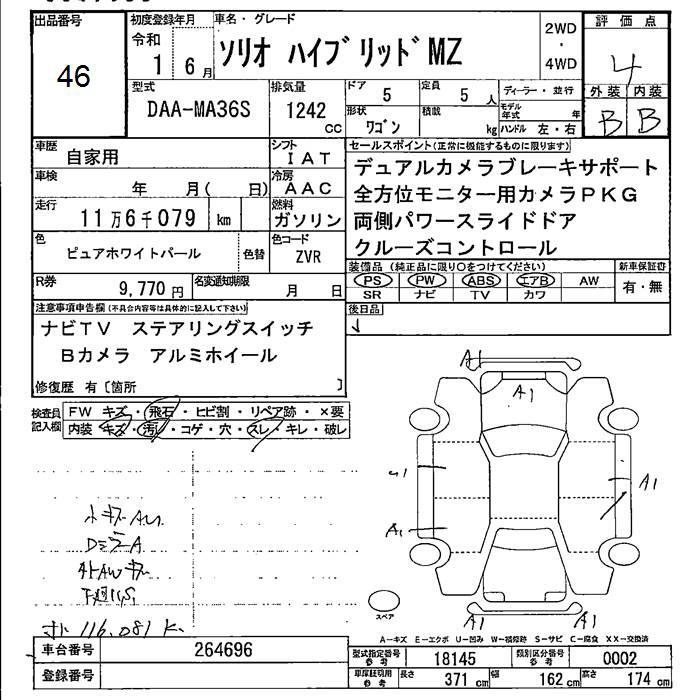 出品番号 初度登録年月 車名・グレード 2WD 評価点
46 令和 1 6月 ソリオ ハイブリッドMZ ・ 4WD 4
型式 排気量 ドア 5 定員 5人 ディーラー・並行 外装 内装
DAA-MA36S 1242 cc 形状 ワゴン 積載 kg モデル年式 年 ハンドル 左・右 B B
車歴 自家用 シフト IAT セールスポイント(正常に機能するものに限ります)
車検 年 月( 日) 冷房 AAC デュアルカメラブレーキサポート
走行 11万6千079 km 燃料 ガソリン 全方位モニター用カメラPKG
両側パワースライドドア
色 ピュアホワイトパール 色替 色コード ZVR クルーズコントロール
R券 9,770円 名変通知期限 月 日 装備品(純正品に限り○をつけてください) 新車保証書
PS PW ABS エアB AW 有・無
SR ナビ TV カワ
注意事項申告欄(不具合内容等は具体的に記入して下さい) 後日品
ナビTV ステアリングスイッチ
Bカメラ アルミホイール
修復歴 有〔箇所 〕
検査員記入欄 FW キズ・飛石・ヒビ割・リペア跡・×要
内装 キズ・汚レ・コゲ・穴・スレ・キレ・破レ
A1
A1
A1
A1
A1
A1 A1
116,081 K
スペア
A―キズ E―エクボ U―凹み W―補修跡 S―サビ C―腐食 XX―交換済
車台番号 264696 型式指定番号 参考 18145 類別区分番号 参考 0002
登録番号 車庫証明用 参考 長さ 371cm 幅 162cm 高さ 174cm